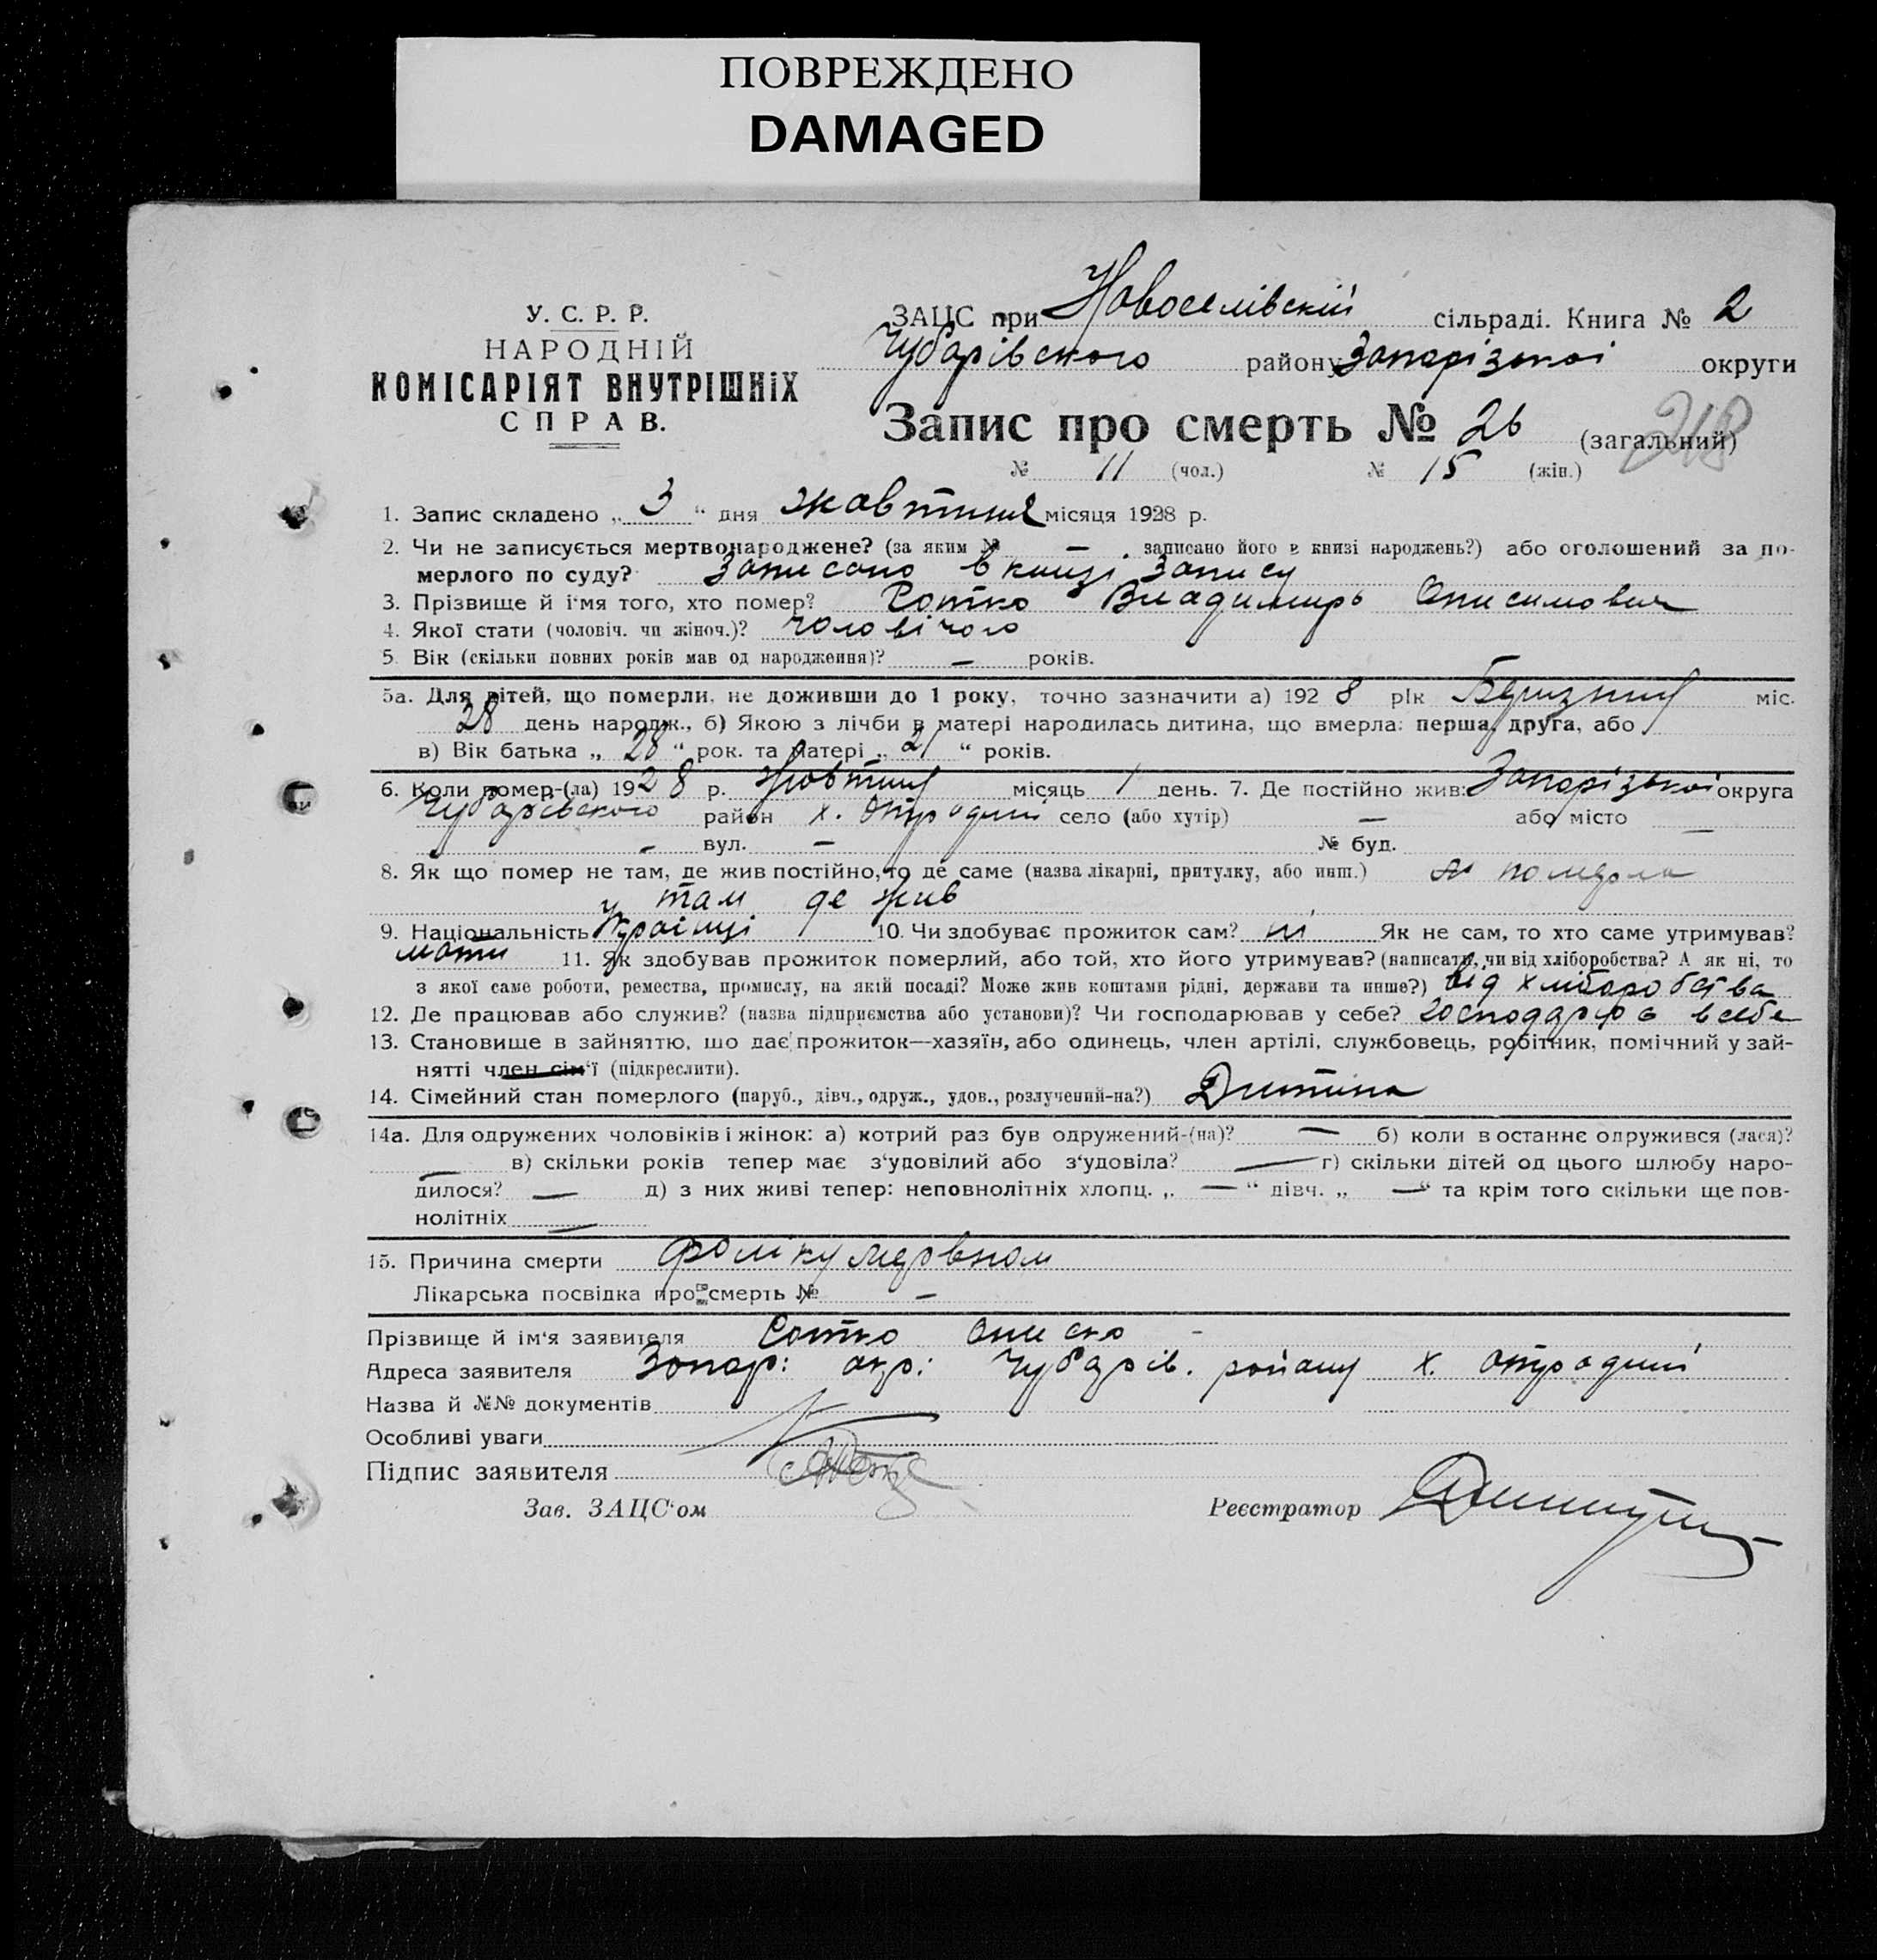 ПОВРЕЖДЕНО
DAMAGED
У. С. Р. Р.
НАРОДНІЙ
КОМІСАРІЯТ ВНУТРІШНІХ
СПРАВ.
ЗАЦС при Новоселівскій сільраді. Книга № 2
Чубарівського району Запорізької округи
Запис про смерть № 26 (загальний) 218
№ 11 (чол.) № 15 (жін.)
1. Запис складено „ 3 “ дня жовтня місяця 1928 р.
2. Чи не записується мертвонароджене? (за яким № — записано його в книзі народжень?) або оголошений за по-
мерлого по суду? Записано в книзі запису
3. Прізвище й імя того, хто помер? Сотко Владимирь Онисимович
4. Якої стати (чоловіч. чи жіноч.)? чоловічого
5. Вік (скільки повних років мав од народження)? — років.
5а. Для дітей, що померли, не доживши до 1 року, точно зазначити а) 192 8 рік міс.
28 день народж., б) Якою з лічби в матері народилась дитина, що вмерла: перша, друга, або
в) Вік батька „ 28 “ рок. та матері „ 21 “ років.
6. Коли помер-(ла) 1928 р. жовтня місяць 1 день. 7. Де постійно жив: Запорізької округа
Чубарівського район х. Отрадний село (або хутір) — або місто —
— вул. — № буд.
8. Як що помер не там, де жив постійно, то де саме (назва лікарні, притулку, або инш.) померла
там де жив
9. Національність Україңці 10. Чи здобуває прожиток сам? ні Як не сам, то хто саме утримував?
мати 11. Як здобував прожиток померлий, або той, хто його утримував? (написати, чи від хліборобства? А як ні, то
з якої саме роботи, ремества, промислу, на якій посаді? Може жив коштами рідні, держави та инше?) від хліборобства
12. Де працював або служив? (назва підприємства або установи)? Чи господарював у себе? господарює в себе
13. Становище в зайняттю, що дає прожиток—хазяїн, або одинець, член артілі, службовець, робітник, помічний у зай-
нятті член сім‘ї (підкреслити).
14. Сімейний стан померлого (паруб., дівч., одруж., удов., розлучений-на?) Дитина
14а. Для одружених чоловіків і жінок: а) котрий раз був одружений-(на)? — б) коли востаннє одружився (лася)?
— в) скільки років тепер має з‘удовілий або з‘удовіла? — г) скільки дітей од цього шлюбу наро-
дилося? — д) з них живі тепер: неповнолітніх хлопц. „ — “ дівч. „ — “ та крім того скільки ще пов-
нолітніх —
15. Причина смерти
Лікарська посвідка про смерть № —
Прізвище й ім‘я заявителя Сотко
Адреса заявителя Запор: окр: Чубарів. району х. Отрадний
Назва й №№ документів
Особливі уваги
Підпис заявителя
Зав. ЗАЦС‘ом Реєстратор